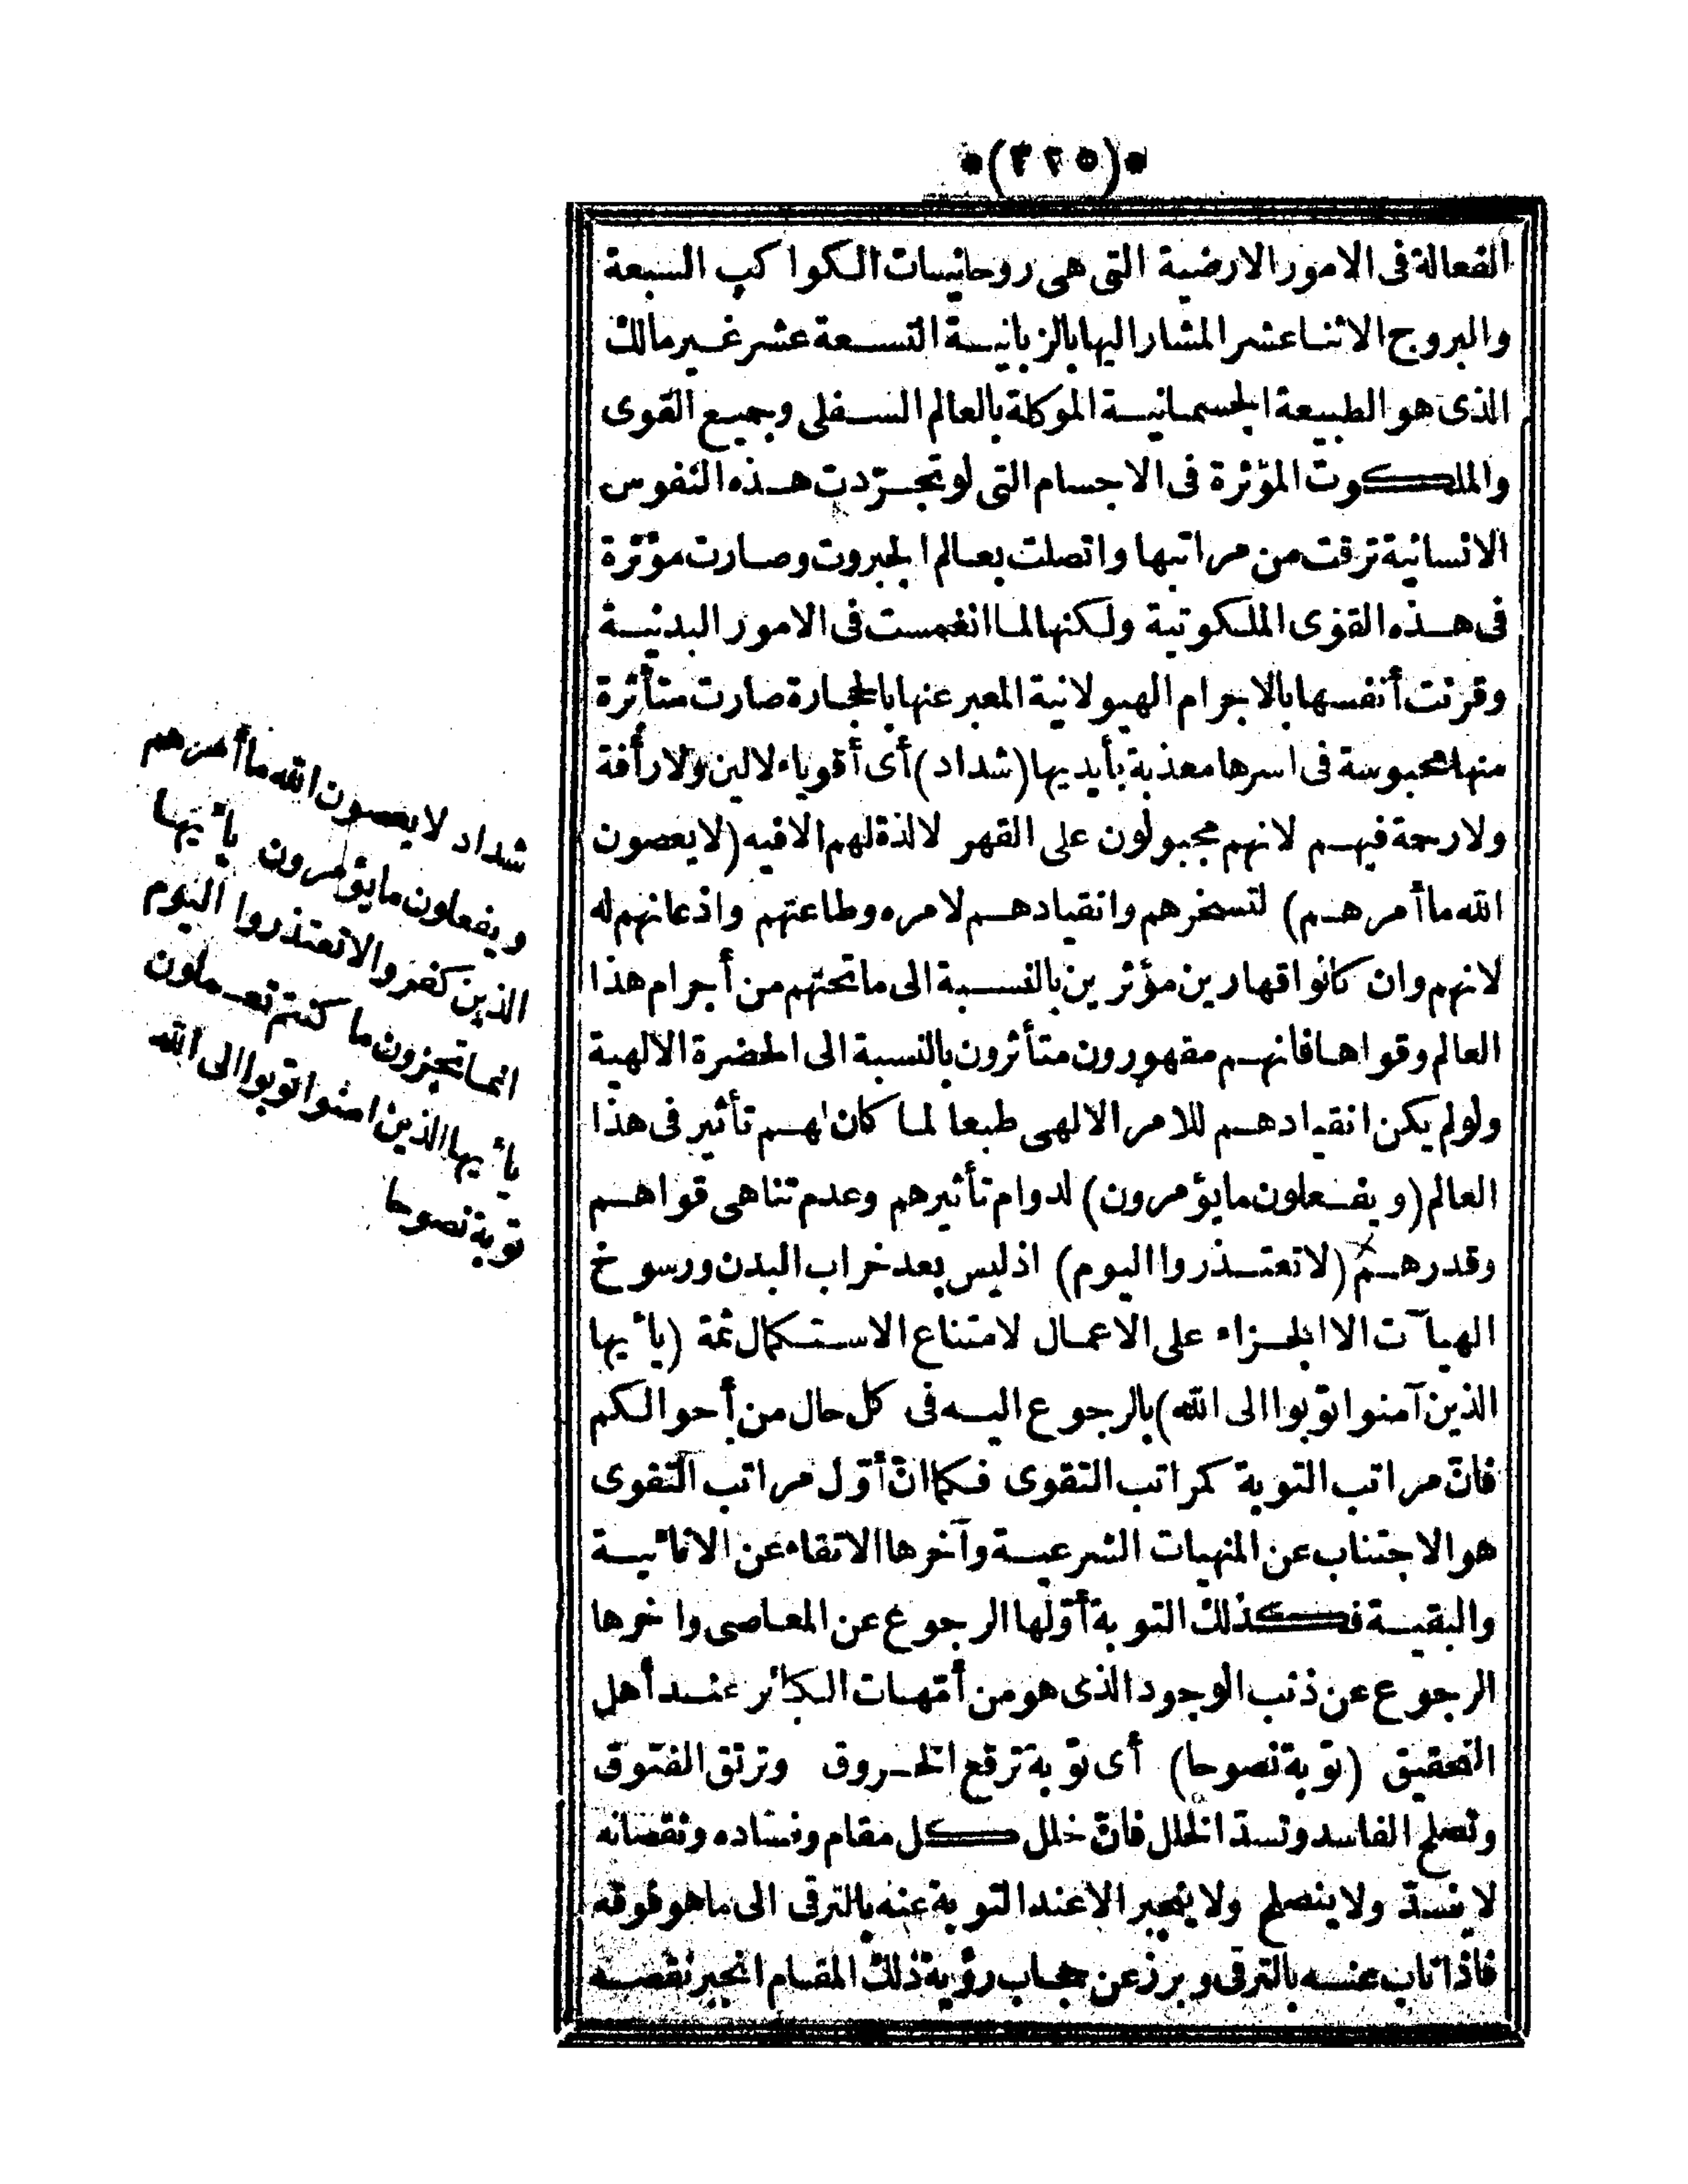 *(٣٢٥)*
الفعالة فى الامور الارضية التى هى روحانيات الكواكب السبعة
والبروج الاثنا عشر المشار اليها بالزبانية التسعة عشر غير مالك
الذى هو الطبيعة الجسمانية الموكلة بالعالم السفلى وجميع القوى
والملكوت المؤثرة فى الاجسام التى لو تجرّدت هذه النفوس
الانسانية ترقت من مراتبها واتصلت بعالم الجبروت وصارت مؤثرة
فى هذه القوى الملكوتية ولكنها لما انغمست فى الامور البدنية
وقرنت أنفسها بالاجرام الهيولانية المعبر عنها بالحجارة صارت متأثرة
منها محبوسة فى اسرها معذبة بأيديها (شداد) أى أقوياء لا لين ولا رأفة
ولا رحمة فيهم لانهم مجبولون على القهر لا لذة لهم الا فيه (لا يعصون
الله ما أمرهم) لتسخرهم وانقيادهم لامره وطاعتهم واذعانهم له
لانهم وان كانوا قهارين مؤثرين بالنسبة الى ما تحتهم من أجرام هذا
العالم وقواها فانهم مقهورون متأثرون بالنسبة الى الحضرة الالهية
ولو لم يكن انقيادهم للامر الالهى طبعا لما كان لهم تأثير فى هذا
العالم (ويفعلون ما يؤمرون) لدوام تأثيرهم وعدم تناهى قواهم
وقدرهم (لا تعتذروا اليوم) اذ ليس بعد خراب البدن ورسوخ
الهيآت الا الجزاء على الاعمال لامتناع الاستكمال ثمة (يا أيها
الذين آمنوا توبوا الى الله) بالرجوع اليه فى كل حال من أحوالكم
فانّ مراتب التوبة كمراتب التقوى فكما انّ أوّل مراتب التقوى
هو الاجتناب عن المنهيات الشرعية وآخرها الاتقاء عن الانائية
والبقية فكذلك التوبة أوّلها الرجوع عن المعاصى وآخرها
الرجوع عن ذنب الوجود الذى هو من أمّهات الكبائر عند أهل
التحقيق (توبة نصوحا) أى توبة ترقع الخروق وترتق الفتوق
وتصلح الفاسد وتسدّ الخلل فانّ خلل كل مقام وفساده ونقصانه
لا ينسدّ ولا ينصلح ولا ينجبر الا عند التوبة عنه بالترقى الى ما هو فوقه
فاذا تاب عنه بالترقى وبرز عن حجاب رؤية ذلك المقام انجبر نقصه
شداد لا يعصون الله ما أمرهم
ويفعلون ما يؤمرون يا أيها
الذين كفروا لا تعتذروا اليوم
انما تجزون ما كنتم تعملون
يا أيها الذين امنوا توبوا الى الله
توبة نصوحا